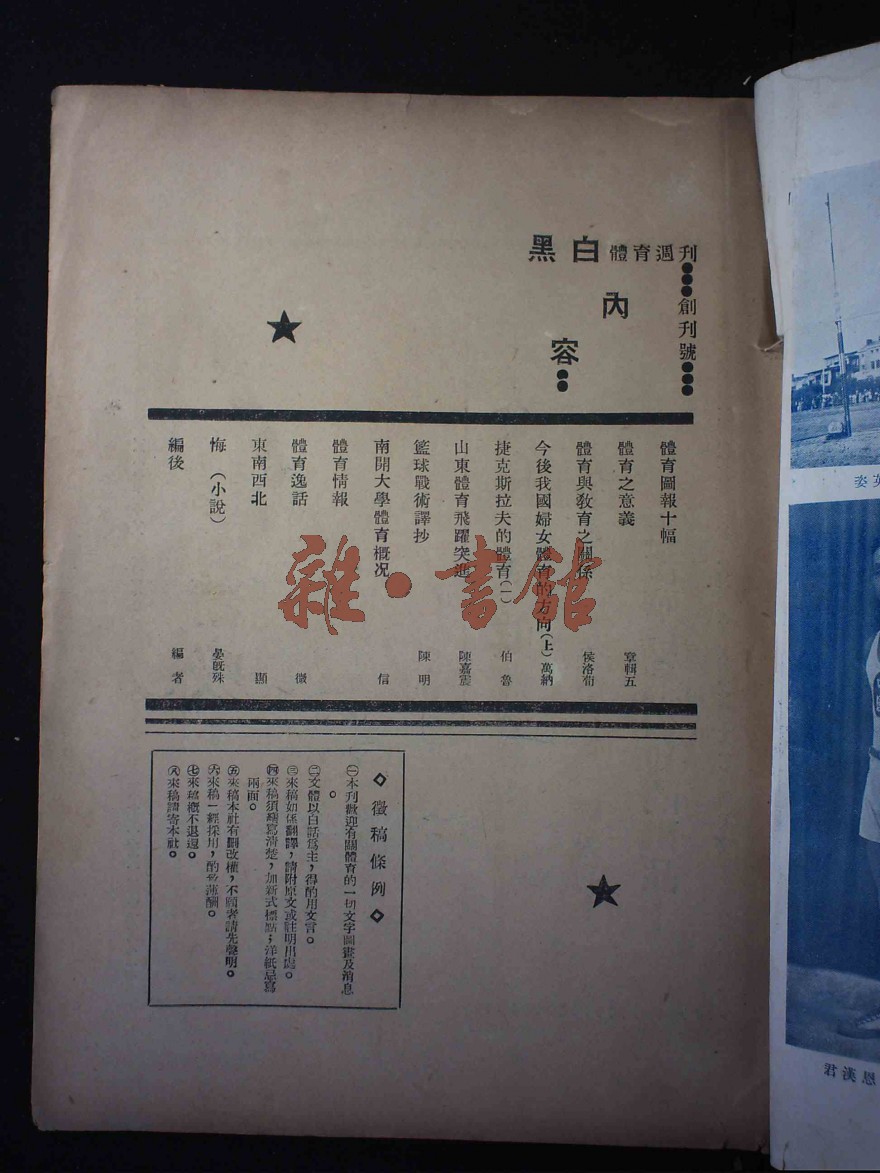 黑白體育週刊
創刊號
內容
體育圖報十幅
體育之意義 章輯五
體育與教育之關係 侯洛荀
今後我國婦女體育的方向(上) 萬納
捷克斯拉夫的體育(一) 伯魯
山東體育飛躍突進 陳嘉震
籃球戰術譯抄 陳明
南開大學體育概况 信
體育情報
體育逸話 微
東南西北 顯
悔(小說) 晏既殊
編後 編者
◇徵稿條例◇
㊀本刊歡迎有關體育的一切文字圖畫及消息
。
㊁文體以白話爲主，得酌用文言。
㊂來稿如係翻譯，請附原文或註明出處。
㊃來稿須繕寫清楚，加新式標點；洋紙忌寫
兩面。
㊄來稿本社有刪改權，不願者請先聲明。
㊅來稿一經採用，酌致薄酬。
㊆來稿概不退還。
㊇來稿請寄本社。
雜·書館
英姿
恩漢君